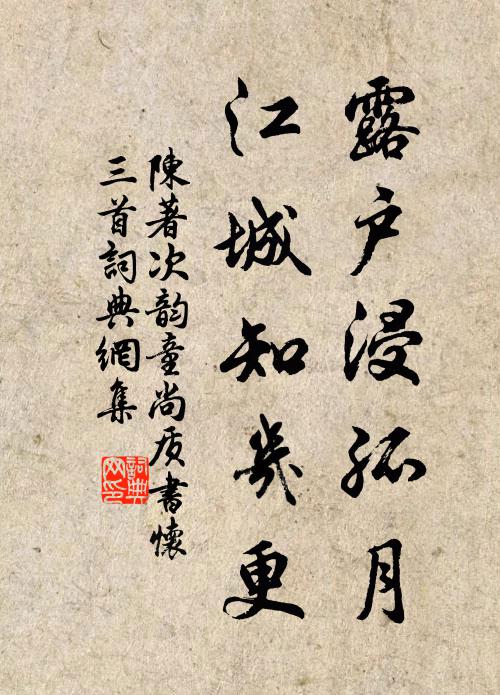 露户浸孤月
江城知幾更
陳著次韵童尚质書懷
三首詞典網集
詞典
网印